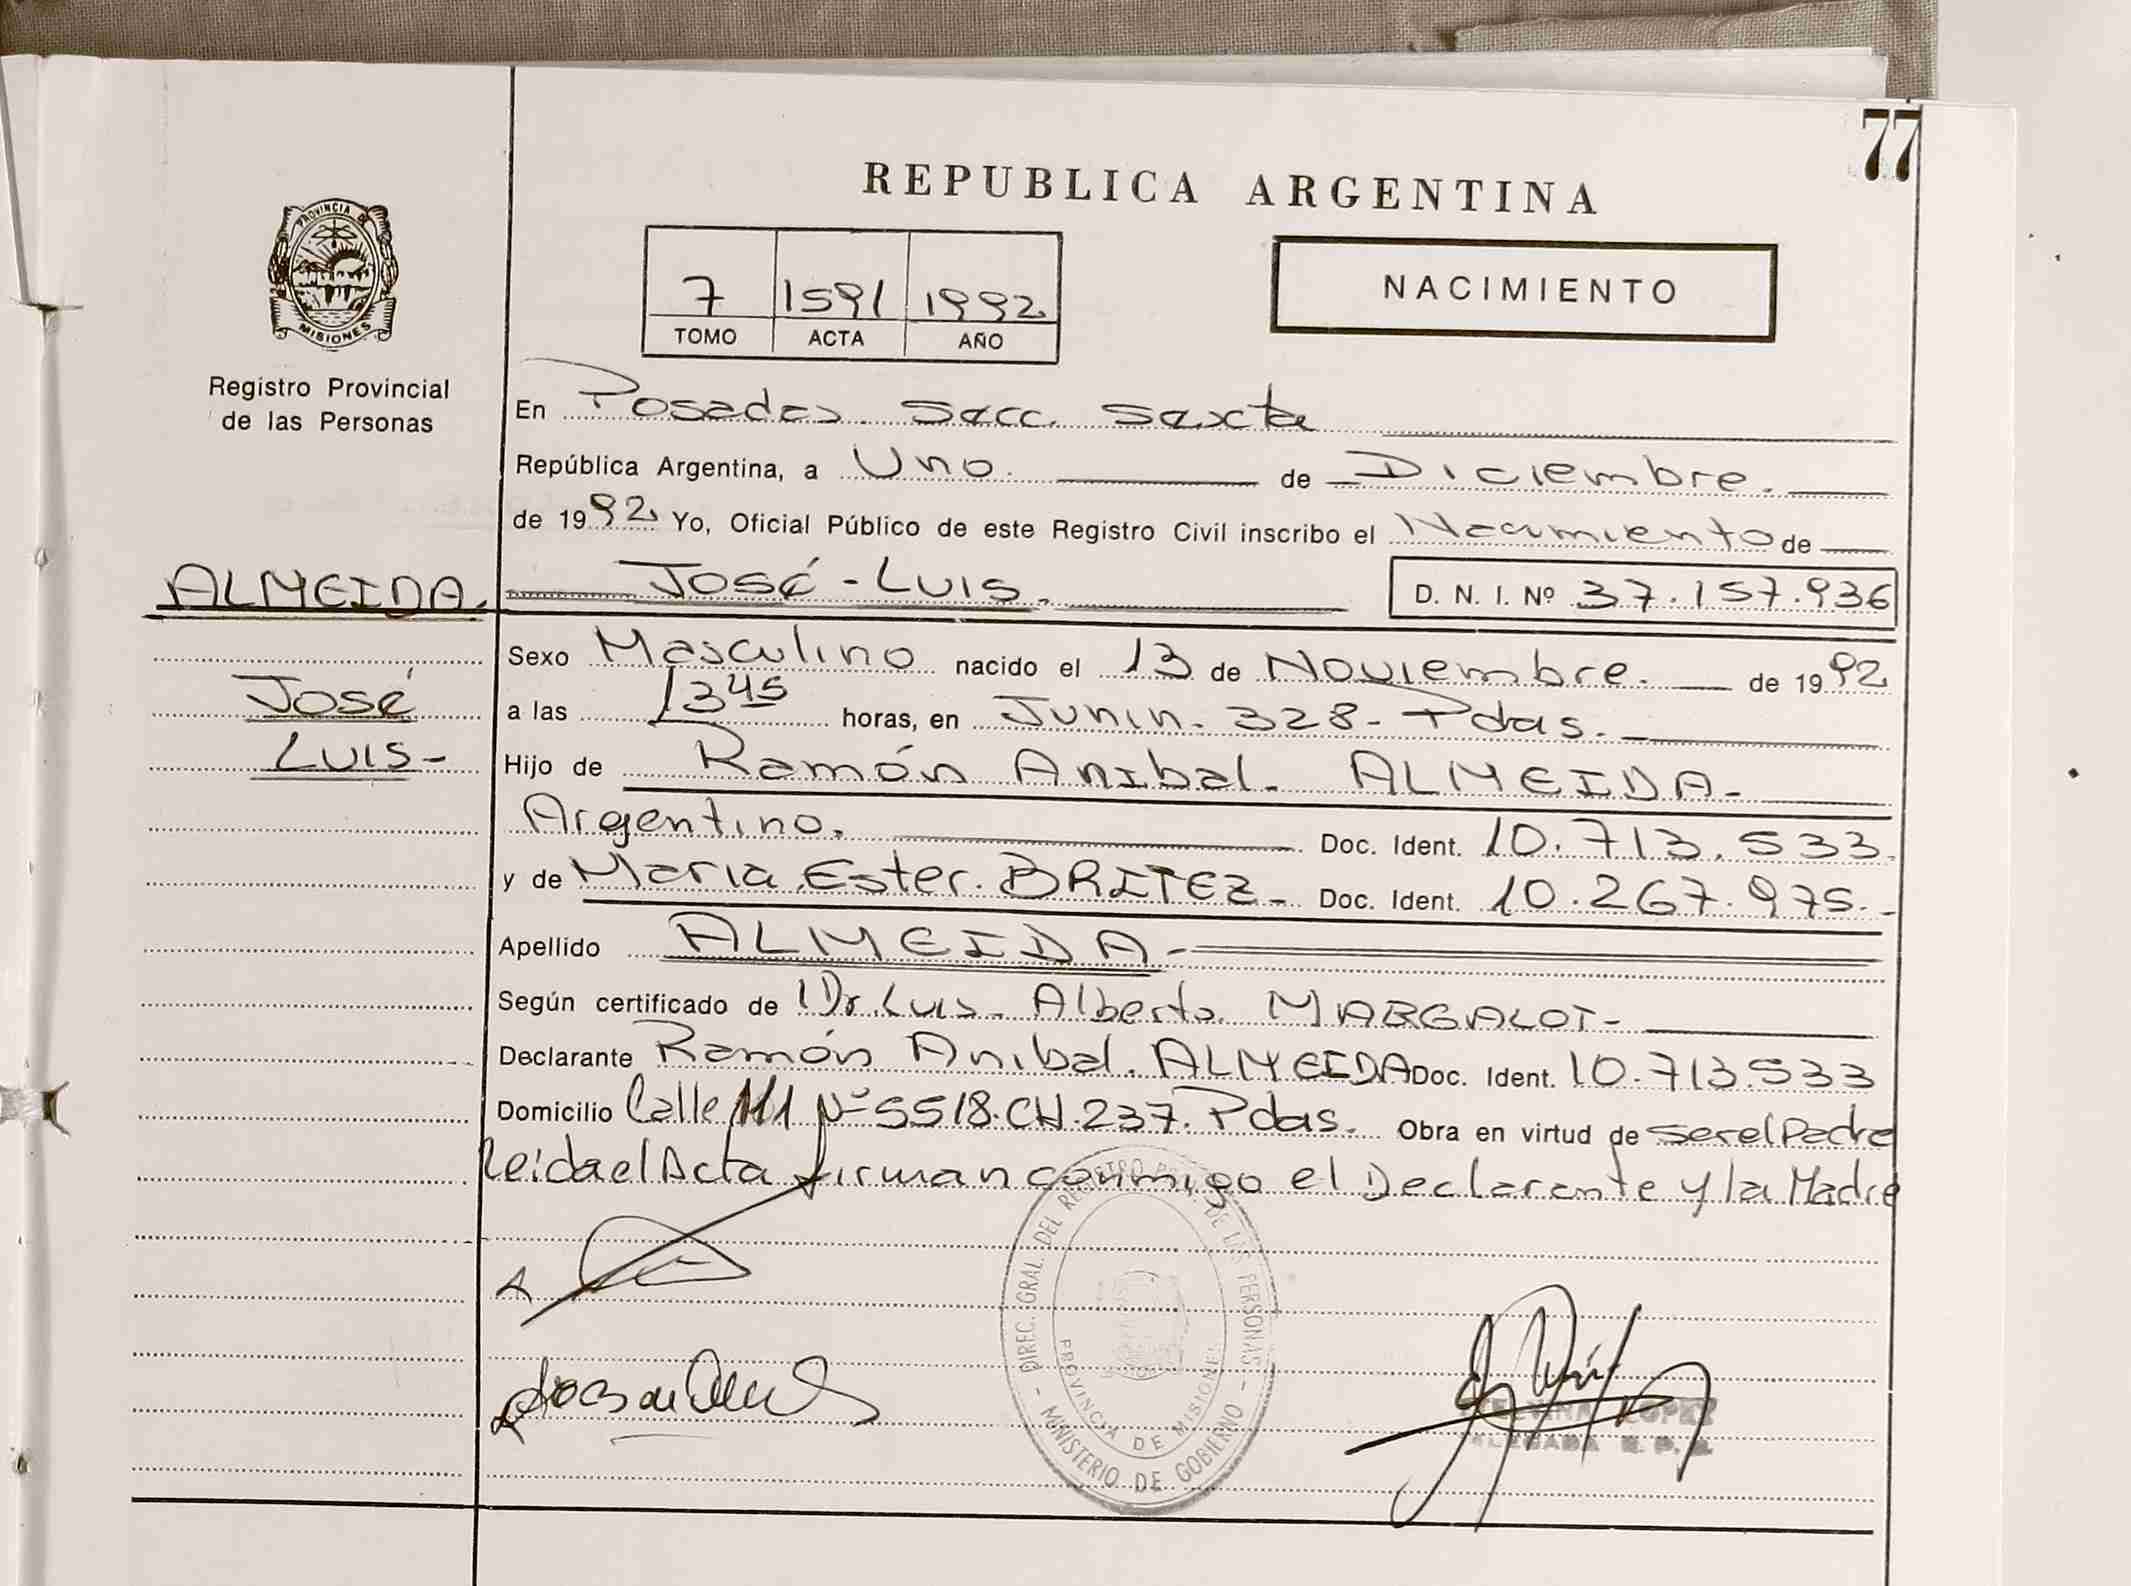 77
REPUBLICA ARGENTINA
PROVINCIA DE
MISIONES
Registro Provincial
de las Personas
7 1591 1992
TOMO ACTA AÑO
NACIMIENTO
En Posadas Secc. Sexta
República Argentina, a Uno. de Diciembre.
de 1992 Yo, Oficial Público de este Registro Civil inscribo el Nacimiento de
ALMEIDA. José-Luis. D. N. I. Nº 37.157.936
Sexo Masculino nacido el 13 de Noviembre. de 1992
José
a las 13 45 horas, en Junin. 328- Pdas.
Luis-
Hijo de Ramón Anibal. ALMEIDA-
Argentino. Doc. Ident. 10.713.533.
y de Maria Ester. BRITEZ- Doc. Ident. 10.267.975.-
Apellido ALMEIDA-
Según certificado de Dr. Luis. Alberto MARGALOT-
Declarante Ramón Anibal. ALMEIDA Doc. Ident. 10.713.533
Domicilio Calle 111 Nº 5518. CH. 237. Pdas. Obra en virtud de ser el Padre
Leida el Acta firman conmigo el Declarante y la Madre
DIREC. GRAL. DEL REGISTRO PROV. DE LAS PERSONAS
PROVINCIA DE MISIONES
- MINISTERIO DE GOBIERNO -
LOPEZ